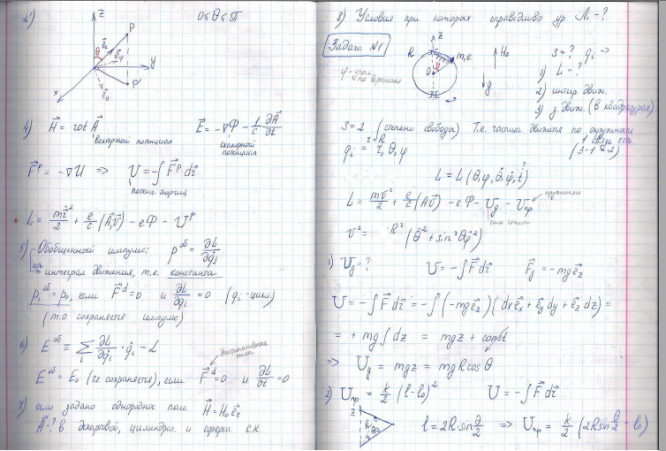 2)
0≤θ≤π
z
P
y
x
P'
4) H⃗ = rot A⃗
E⃗ = -∇Φ - 1/c ∂A⃗/∂t
векторный потенциал
скалярный потенциал
F⃗ᵖ = -∇U ⇒ U = -∫F⃗ᵖ dr⃗
L = mv⃗²/2 + e/c (A⃗,v⃗) - eΦ - Uᵖ
5) Обобщенный импульс: pᵒᵇ = ∂L/∂q̇ᵢ
интеграл движения, т.е. константа
pᵢᵒᵇ = p₀, если F⃗ᵈ = 0 и ∂L/∂qᵢ = 0 (qᵢ - цикл)
(то сохраняется импульс)
6) Eᵒᵇ = Σᵢ ∂L/∂q̇ᵢ · q̇ᵢ - L
Eᵒᵇ = E₀ (сохраняется), если F⃗ᵈ = 0 и ∂L/∂t = 0
7) если задано однородное поле H⃗ = H₀e⃗z
A⃗-? в декартовой, цилиндри. и сферич. с.к.
8) Условия при которых справедливо ур Л-?
Задача №1
z
R
m,e
O
H₀
g
S = ? qᵢ -
1) L - ?
2) интегр. движ.
3) з. движ. (в квадратурах)
S=2 (степени свободы) Т.к. частица движется по окружности
qᵢ = r, θ, φ
L = L(θ,φ,θ̇,φ̇,t)
L = mv⃗²/2 + e/c (A⃗v⃗) - eΦ - Ug - Uпр
v² = R²(θ̇² + sin²θφ̇²)
1) Ug = ? U = -∫F⃗dr⃗ F⃗g = -mge⃗z
U = -∫F⃗dr⃗ = -∫(-mge⃗z)(dxe⃗x + e⃗y dy + e⃗z dz) =
= +mg∫dz = mgz + const
⇒ Ug = mgz = mgRcosθ
2) Uпр = k/2 (l-l₀)² U = -∫F⃗dr⃗
z
l = 2R·sin θ/2 ⇒ Uпр = k/2 (2R sin θ/2 - l₀)